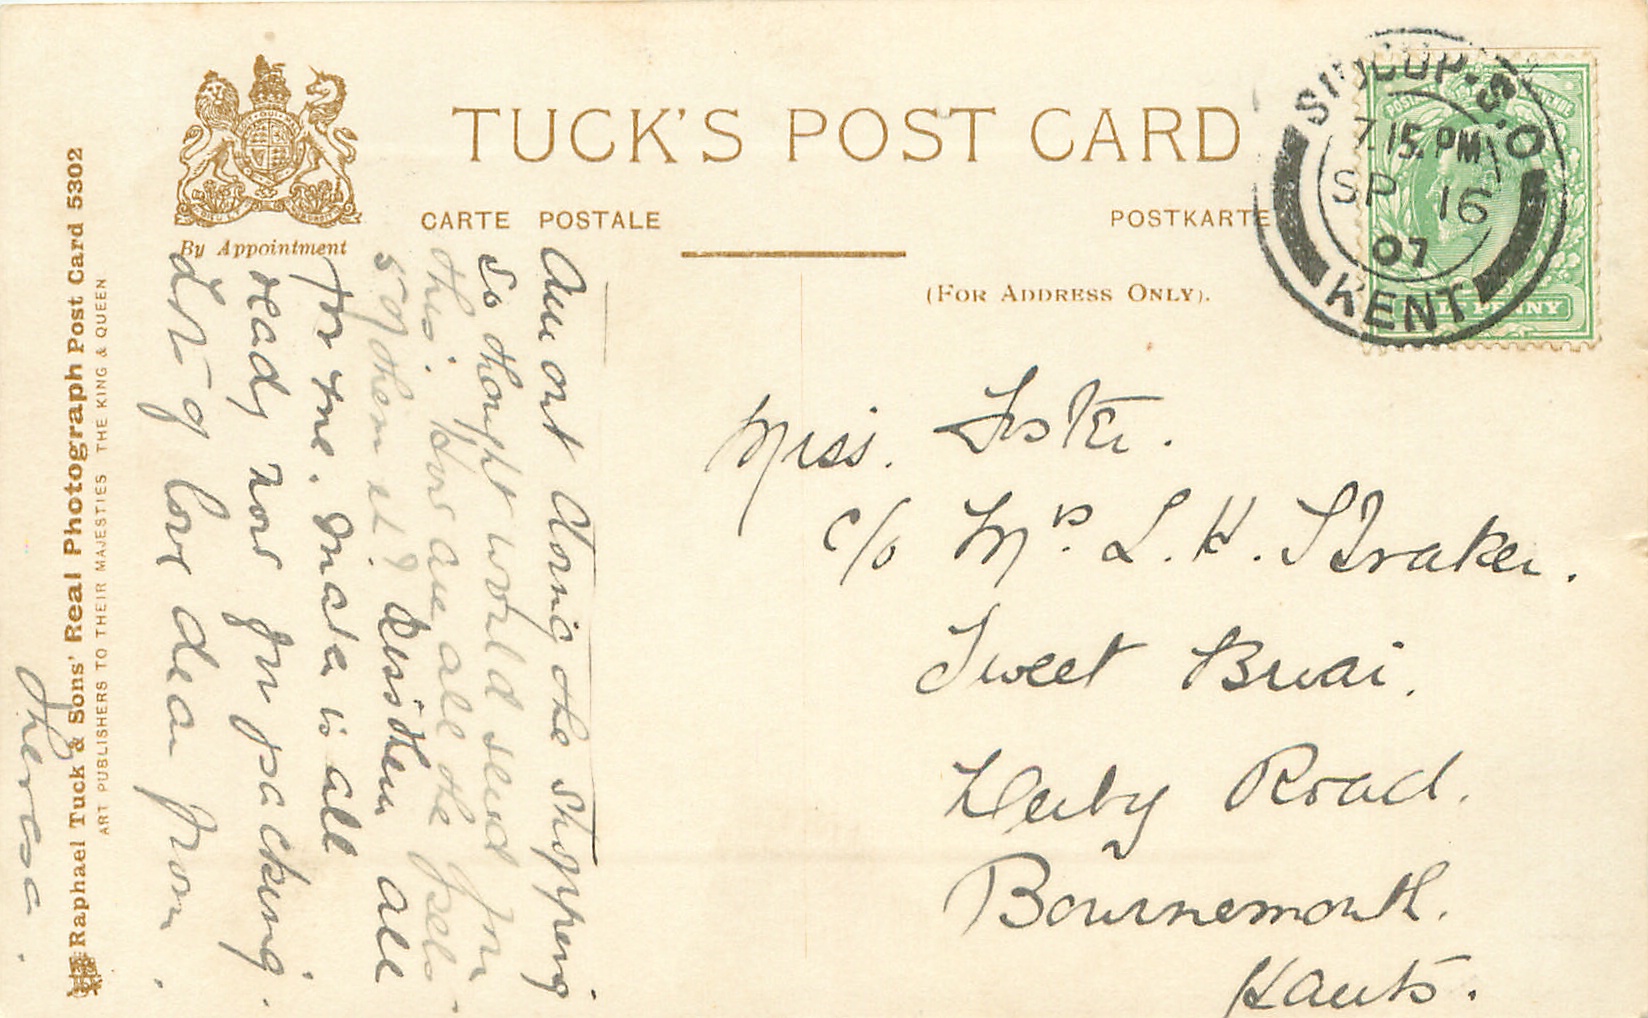 TUCK'S POST CARD
By Appointment
CARTE POSTALE
POSTKARTE
(FOR ADDRESS ONLY).
SIDCUP. S.O
7.15. PM
SP 16
07
KENT
HALFPENNY
Am out doing the shopping
so thought would send you
this. How are all the
5 of them et? Kiss them all
for me. is all
ready now for packing.
of love dear from
Theresa.
Miss. Foster.
c/o Mrs. L. H. Straker.
Sweet Briar.
Derby Road.
Bournemouth.
Hants.
Raphael Tuck & Sons' Real Photograph Post Card 5302
ART PUBLISHERS TO THEIR MAJESTIES THE KING & QUEEN